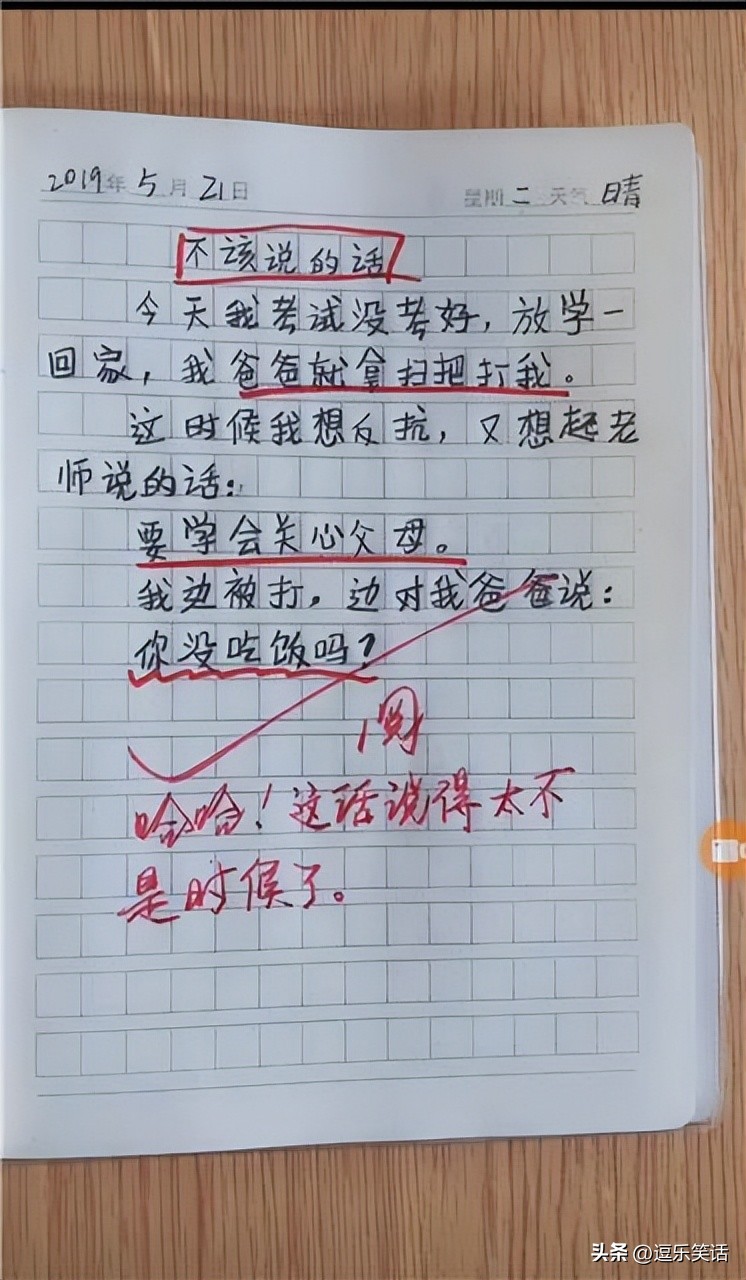 2019年 5月21日 星期二 天气 晴
不该说的话
今天我考试没考好，放学一
回家，我爸爸就拿扫把打我。
这时候我想反抗，又想起老
师说的话：
要学会关心父母。
我边被打，边对我爸爸说：
你没吃饭吗？
阅
哈哈！这话说得太不
是时候了。
头条 @逗乐笑话